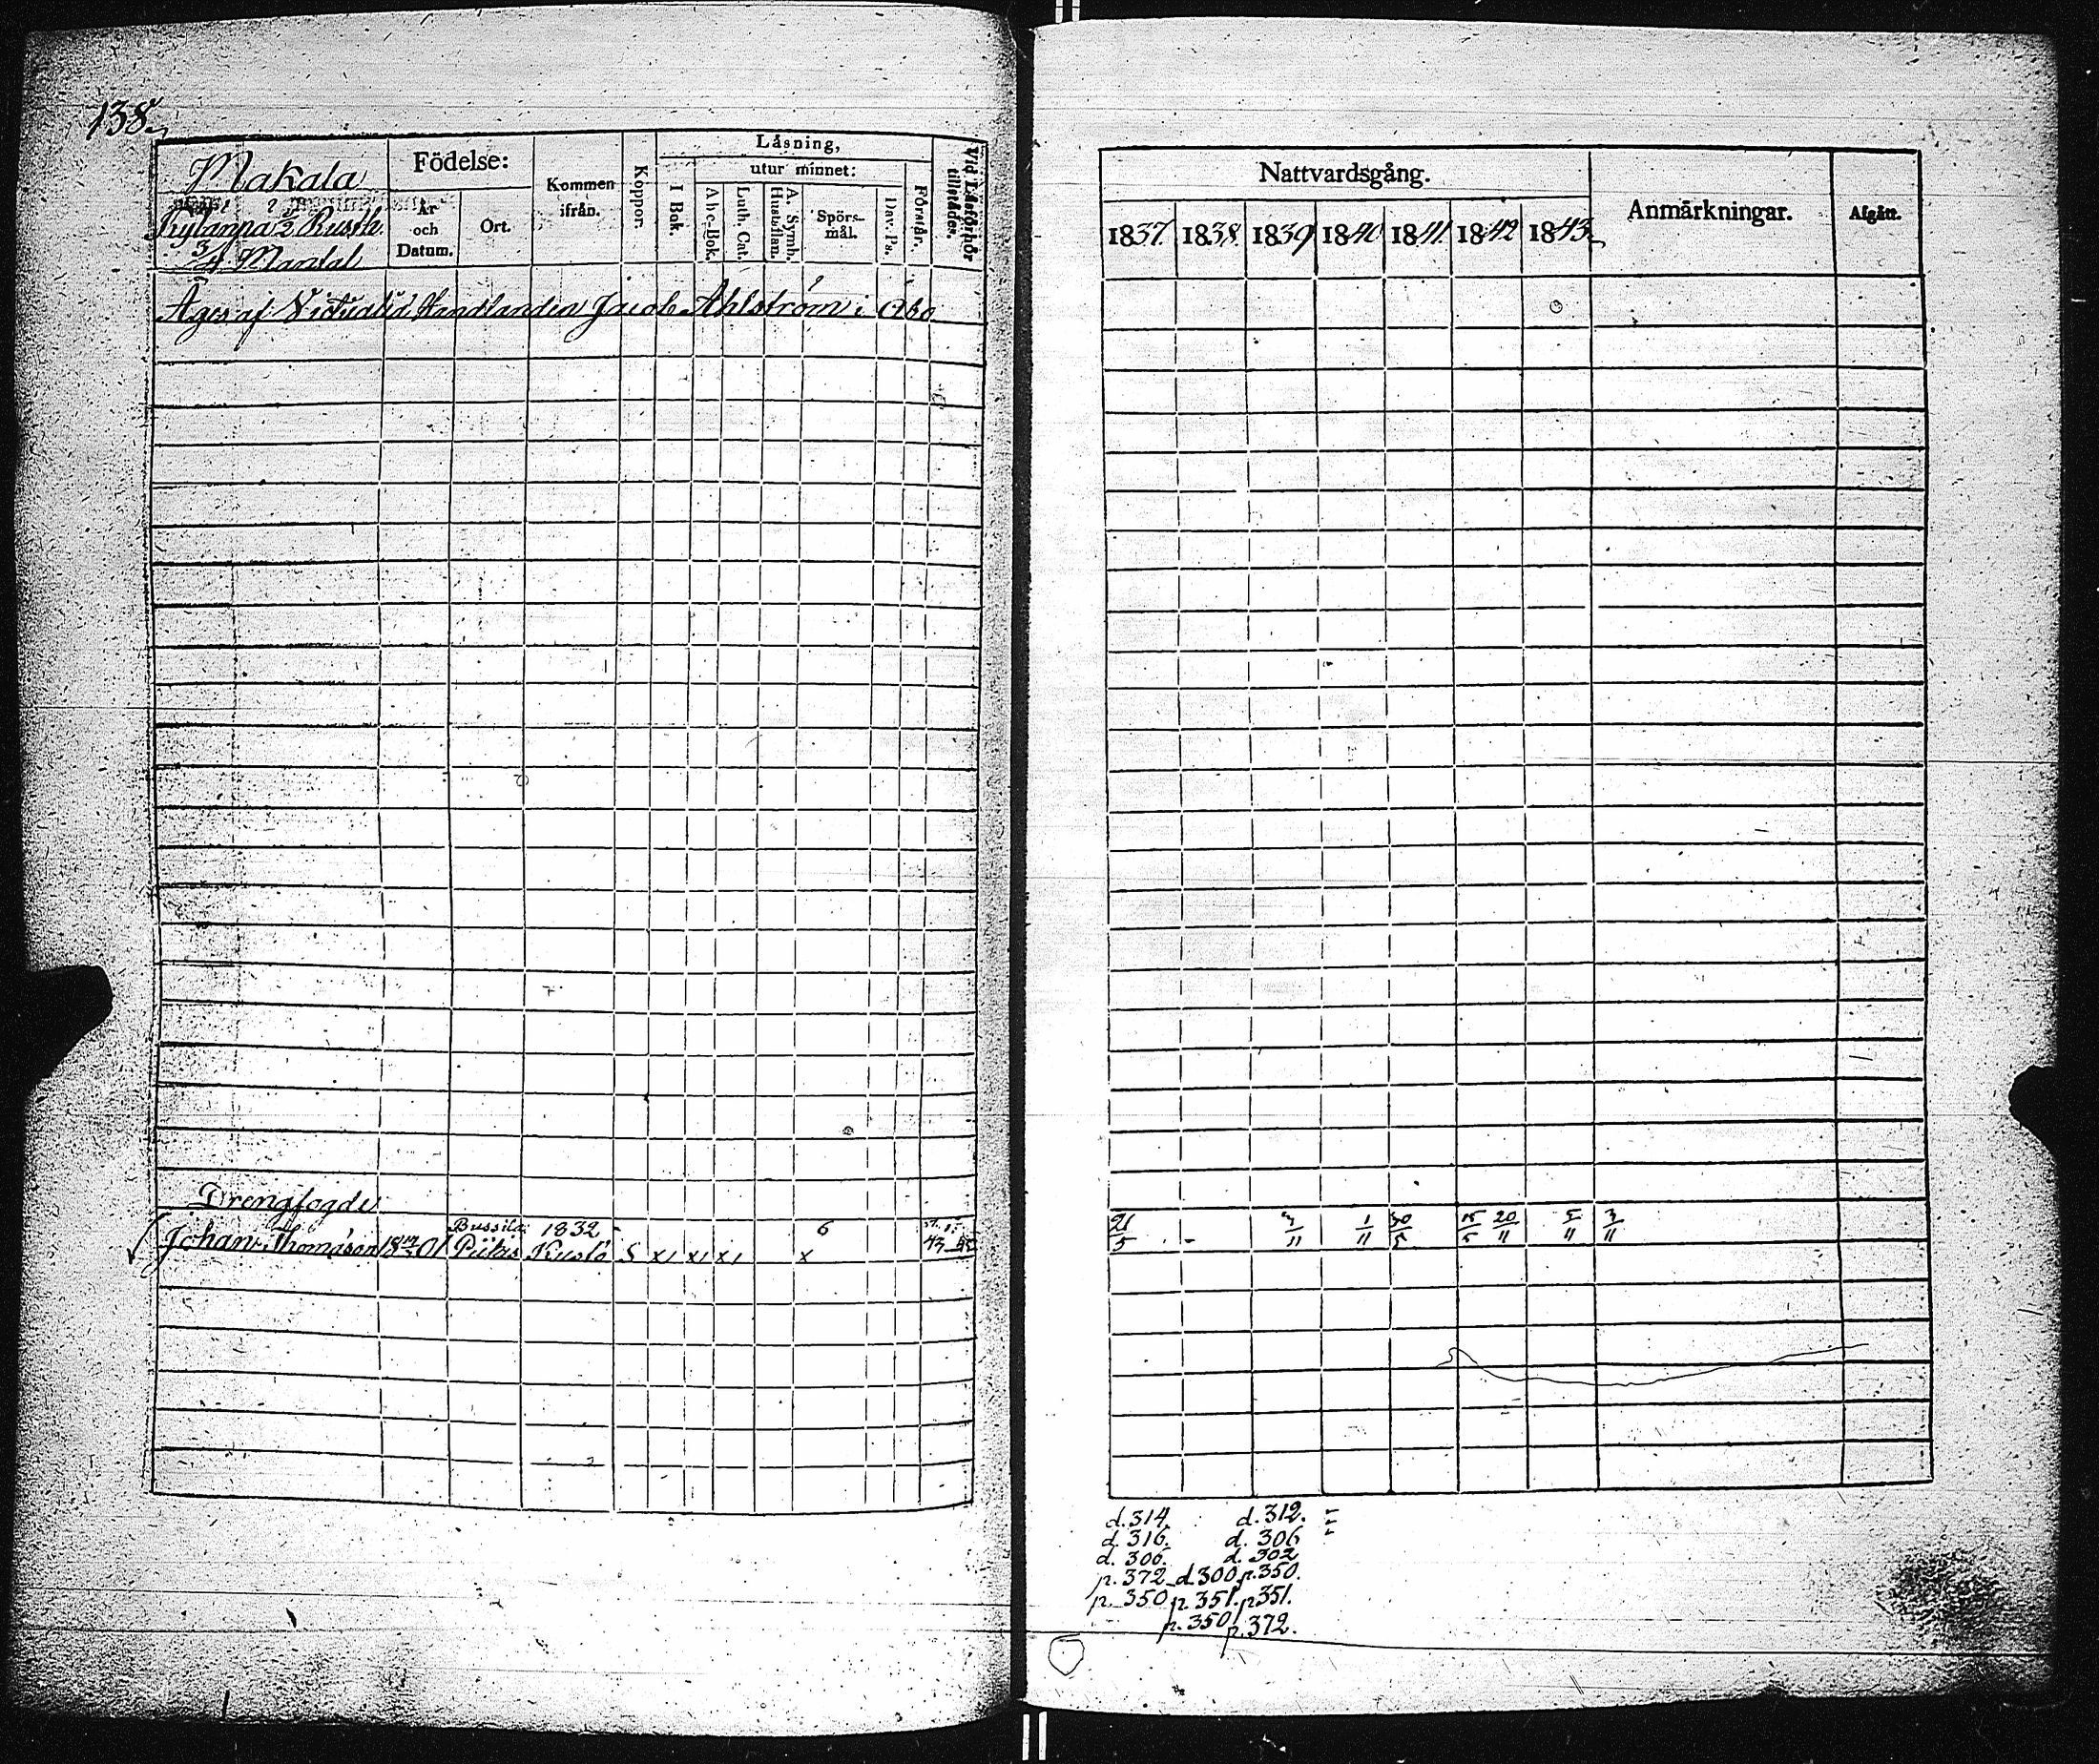 138.
Makala
Kylänpä ½ Rusth.
3/4 Mantal
Födelse:
År och Datum.
Ort.
Kommen ifrån.
Koppor.
Läsning,
I Bok.
utur minnet:
Abc-Bok.
Luth. Cat.
A. Symb. Hustaflan.
Spörs-mål.
Dav. Ps.
Förstår.
Vid Läsförhör tillstädes.
Äges af Victualie Handlanden Jacob Ahlström i Åbo
Drengfogde
Bussila 1832 6
Johan Thomasson 01 Piikis Kustö S x x x x 43 45
Nattvardsgång.
Anmärkningar.
Afgått.
1837. 1838. 1839 1840 1841. 1842 1843.
21/5 - 3/11 1/11 30/5 15/5 20/11 5/11 3/11
d. 314. d. 312.
d. 316. d. 306
d. 306. d. 302
p. 372 d. 300 p. 350.
p. 350 p. 351. p. 351.
p. 350 p. 372.